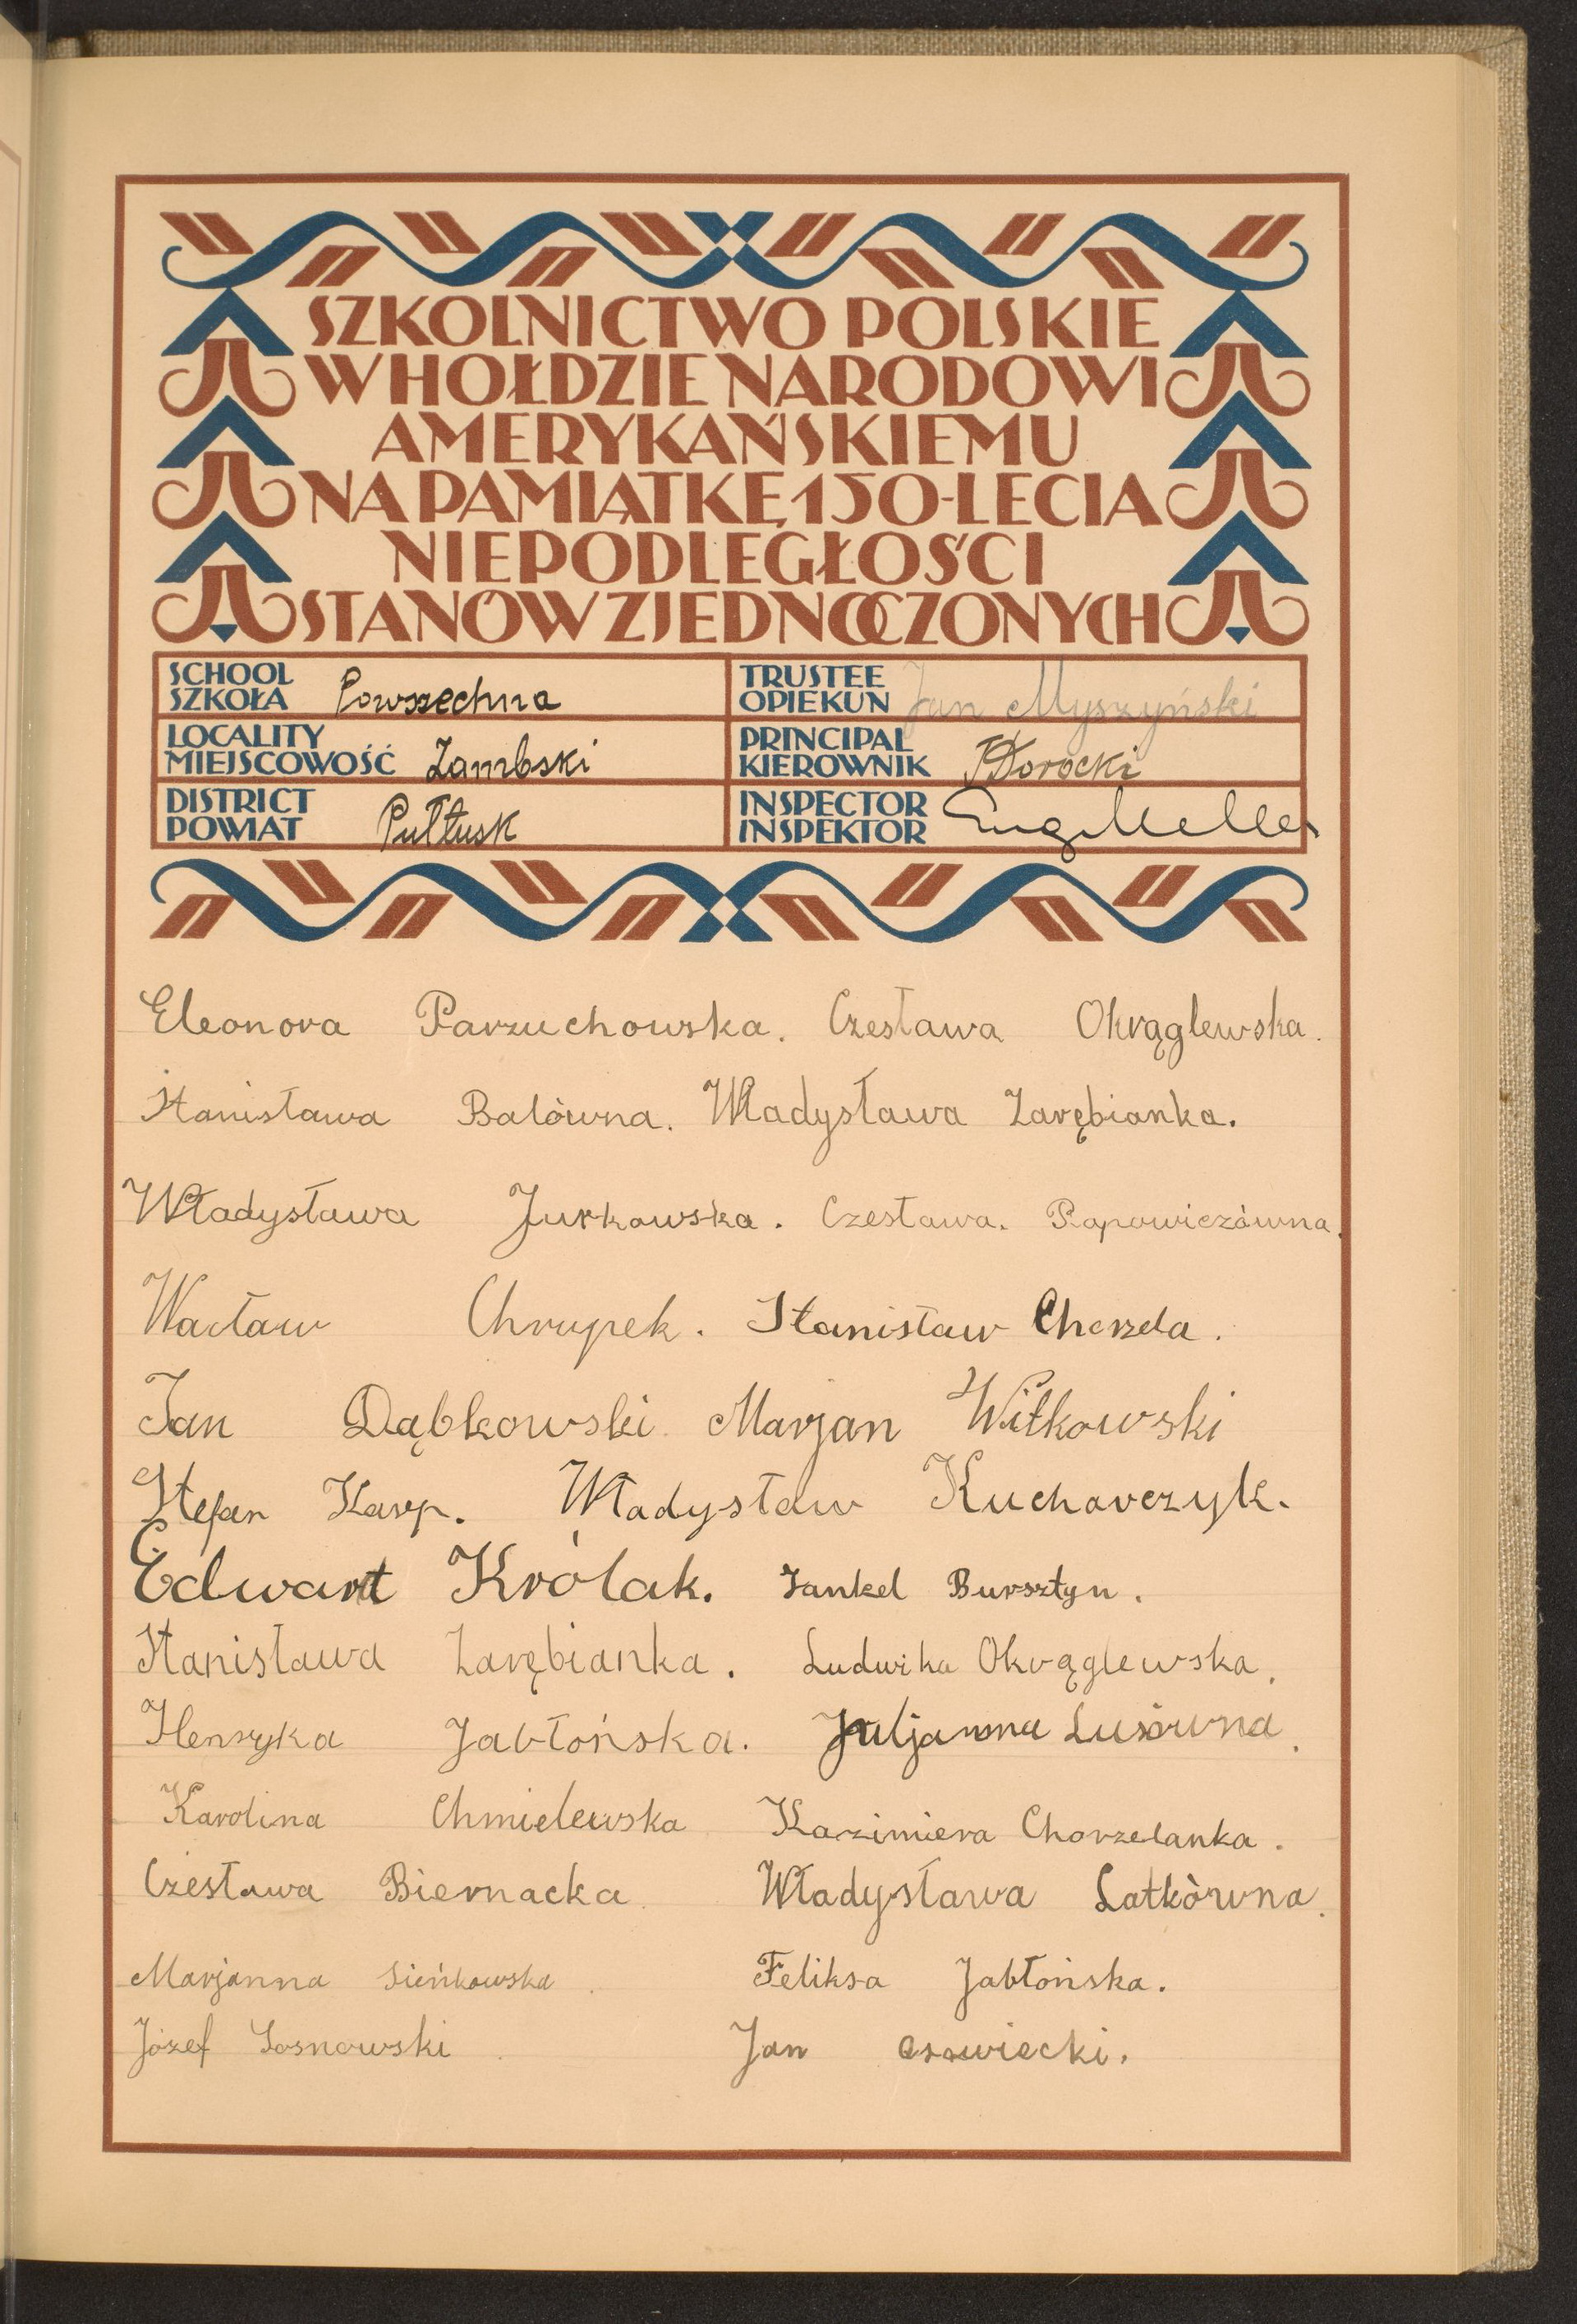 SZKOLNICTWO POLSKIE
W HOŁDZIE NARODOWI
AMERYKAŃSKIEMU
NA PAMIĄTKĘ 150-LECIA
NIEPODLEGŁOŚCI
STANÓW ZJEDNOCZONYCH
SCHOOL
SZKOŁA Powszechna
TRUSTEE
OPIEKUN Jan Myszyński
LOCALITY
MIEJSCOWOŚĆ Zambski
PRINCIPAL
KIEROWNIK
DISTRICT
POWIAT Pułtusk
INSPECTOR
INSPEKTOR
Eleonora Parzuchowska. Czesława Okrąglewska.
Stanisława Balówna. Władysława Zarębianka.
Władysława Jurkowska. Czesława. Popowiczówna.
Wacław Chrupek. Stanisław Chorzela.
Jan Dąbkowski. Marjan Witkowski
Stefan Karp. Władysław Kucharczyk.
Edwart Królak. Jankel Bursztyn.
Stanisława Zarębianka. Ludwika Okrąglewska.
Henryka Jabłońska. Juljanna Lusówna.
Karolina Chmielewska Kazimiera Chorzelanka.
Czesława Biernacka. Władysława Latkówna.
Marjanna Sieńkowska. Feliksa Jabłońska.
Józef Sosnowski. Jan